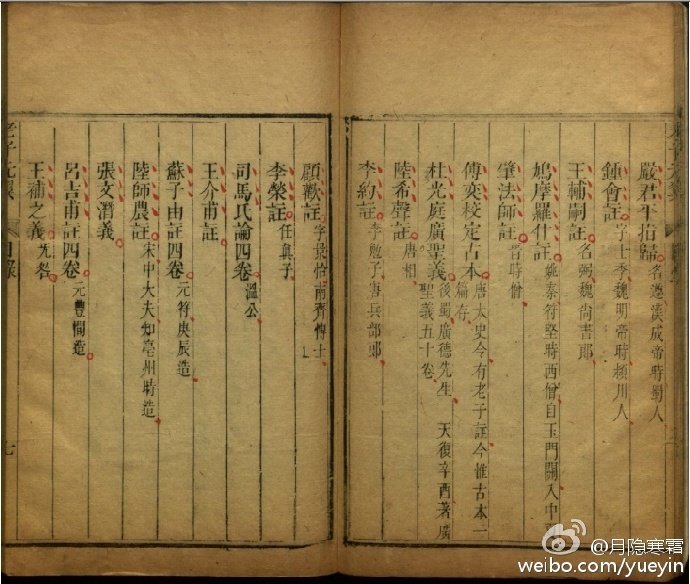 嚴君平指歸 名遵漢成帝時蜀人
鍾會註 字士季魏明帝時潁川人
王輔嗣註 名弼魏尚書郎
鳩摩羅什註 姚秦苻堅時西僧自玉門關入中
肇法師註 晉時僧
傅奕校定古本 唐太史今有老子註今惟古本一
篇存
杜光庭廣聖義 後蜀廣德先生 天復辛酉著廣
聖義五十卷
陸希聲註 唐相
李約註 李勉子唐兵部郎
顧歡註 字景怡南齊博士
李榮註 任真子
司馬氏論四卷 溫公
王介甫註
蘇子由註四卷 元符庚辰造
陸師農註 宋中大夫知亳州時造
張文潛義
呂吉甫註四卷 元豐間造
王補之義 先咎
老子元翼
目錄
七
@月隐寒霜
weibo.com/yueyin